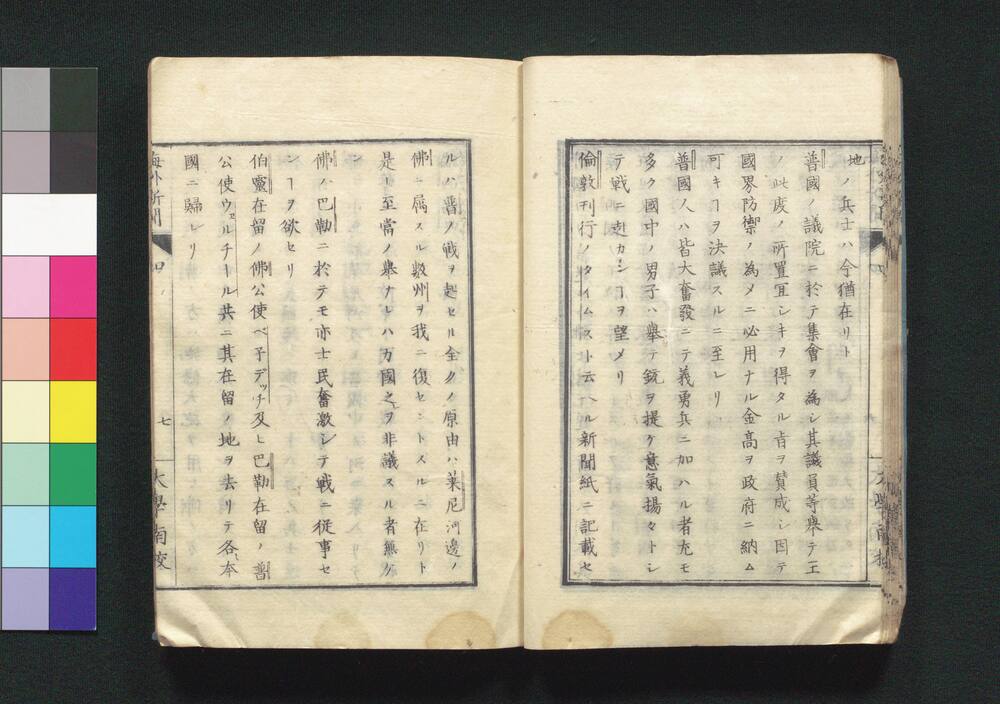 地ノ兵士ハ今猶在リト
普國ノ議院ニ於テ集會ヲ為シ其議員等舉テ王
ノ此度ノ所置宜シキヲ得タル旨ヲ賛成シ因テ
國界防禦ノ為メニ必用ナル金高ヲ政府ニ納ム
可キヿヲ決議スルニ至レリ
普國人ハ皆大奮發ニテ義勇兵ニ加ハル者尤モ
多ク國中ノ男子ハ舉テ銃ヲ提ケ意氣揚々トシ
テ戦ニ赴カンヿヲ望メリ
倫敦刊行ノタイムスト云ヘル新聞紙ニ記載セ
ルハ普ノ戦ヲ起セル全クノ原由ハ莱尼河邊ノ
佛ニ属スル数州ヲ我ニ復セントスルニ在リト
是レ至當ノ舉ナレハ万國之ヲ非議スル者無ケ
ン
佛ハ巴勒ニ於テモ亦士民奮激シテ戦ニ従事セ
ンヿヲ欲セリ
伯靈在留ノ佛公使ベ子デッチ及ヒ巴勒在留ノ普
公使ウェルチール共ニ其在留ノ地ヲ去リテ各本
國ニ歸レリ
海外新聞
四
七
大學南校